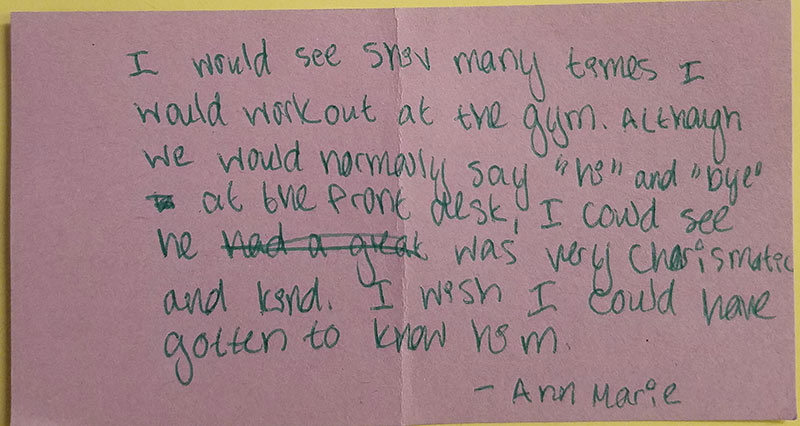 I would see Shiv many times I
would workout at the gym. Although
we would normally say "hi" and "bye"
at the front desk, I could see
he had a great was very charismatic
and kind. I wish I could have
gotten to know him.
- Ann Marie